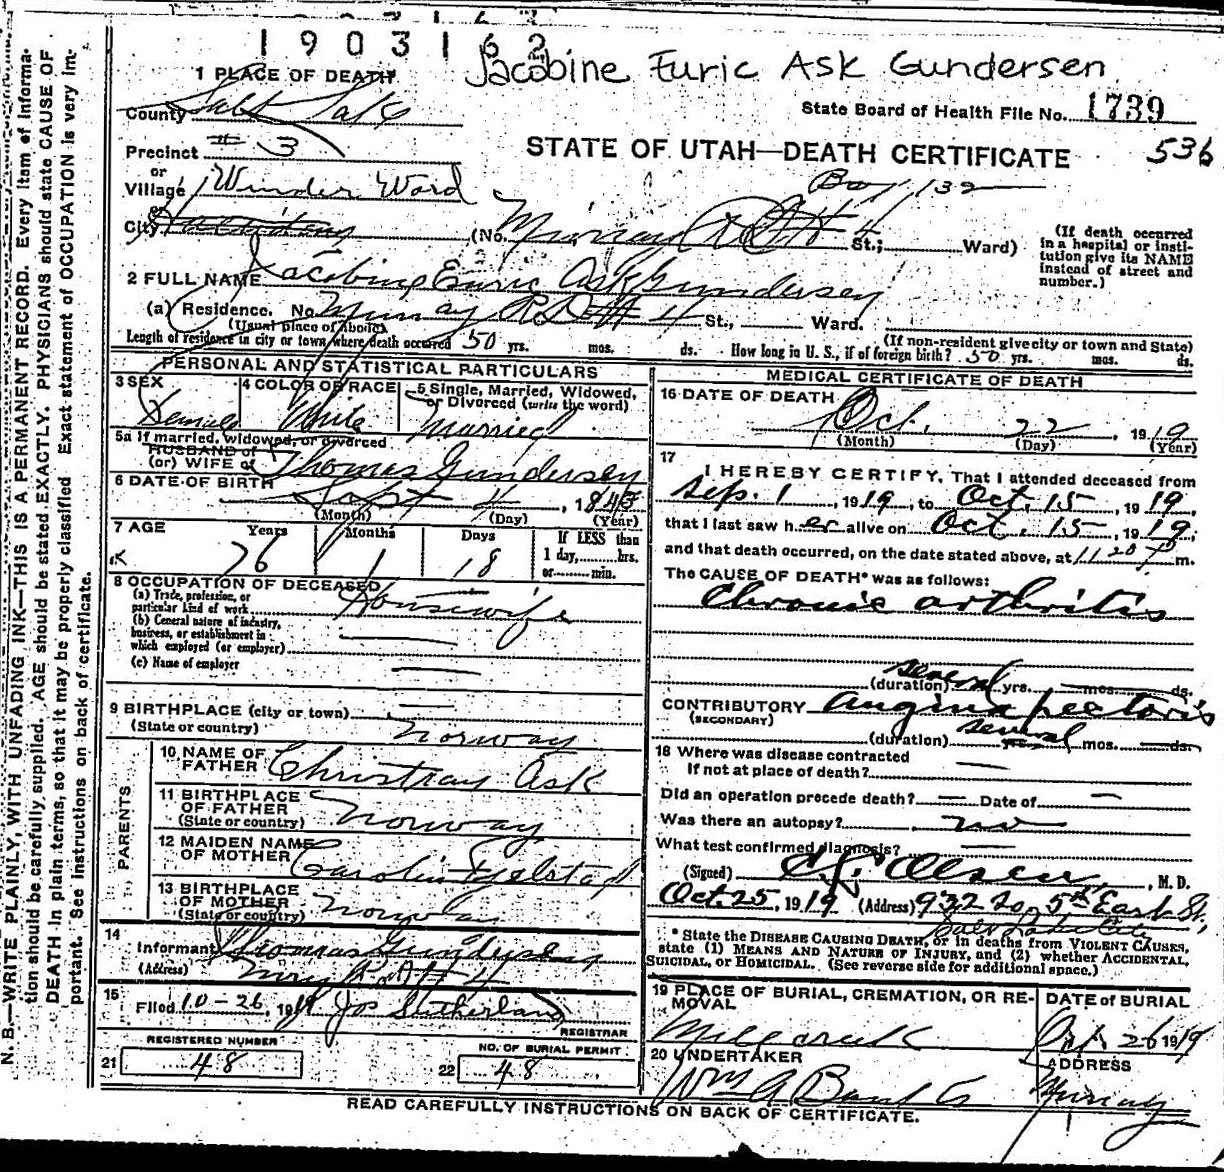 1903162
Jacobine Euric Ask Gundersen
1 PLACE OF DEATH
State Board of Health File No. 1739
County Salt Lake
STATE OF UTAH—DEATH CERTIFICATE 536
Precinct # 3
or
Village Winder Ward
Box 132
or
City (No. Murray R.D # 4 St.; Ward)
(If death occurred in a hospital or institution give its NAME instead of street and number.)
2 FULL NAME Jacobine Euric Ask Gundersen
(a) Residence. No. Murray R.D # 4 St., Ward.
(Usual place of abode) (If non-resident give city or town and State)
Length of residence in city or town where death occurred 50 yrs. mos. ds. How long in U. S., if of foreign birth? 50 yrs. mos. ds.
PERSONAL AND STATISTICAL PARTICULARS
3 SEX Female
4 COLOR OR RACE White
5 Single, Married, Widowed, or Divorced (write the word) Married
5a If married, widowed, or divorced
HUSBAND of
(or) WIFE of Thomas Gundersen
6 DATE OF BIRTH Sept 4, 1843
(Month) (Day) (Year)
7 AGE Years Months Days If LESS than
76 1 18 1 day, hrs.
or min.
8 OCCUPATION OF DECEASED
(a) Trade, profession, or particular kind of work Housewife
(b) General nature of industry, business, or establishment in which employed (or employer) —
(c) Name of employer —
9 BIRTHPLACE (city or town) —
(State or country) Norway
PARENTS
10 NAME OF FATHER Ask
11 BIRTHPLACE OF FATHER (State or country) Norway
12 MAIDEN NAME OF MOTHER
13 BIRTHPLACE OF MOTHER (State or country) Norway
14 Informant Thomas Gundersen
(Address) Murray R.D # 4
15 Filed 10-26, 1919 Jos Sutherland
REGISTRAR
REGISTERED NUMBER NO. OF BURIAL PERMIT
21 48 22 48
MEDICAL CERTIFICATE OF DEATH
16 DATE OF DEATH
Oct. 22, 1919
(Month) (Day) (Year)
17
I HEREBY CERTIFY, That I attended deceased from
Sep. 1, 1919, to Oct. 15, 1919,
that I last saw her alive on Oct. 15, 1919,
and that death occurred, on the date stated above, at 11 20 P m.
The CAUSE OF DEATH* was as follows:
Chronic arthritis
(duration) several yrs. — mos. — ds.
CONTRIBUTORY Angina pectoris
(SECONDARY)
(duration) several mos. — ds.
18 Where was disease contracted
If not at place of death? —
Did an operation precede death? — Date of —
Was there an autopsy? no
What test confirmed diagnosis? —
(Signed) Olsen, M. D.
Oct 25, 1919 (Address) 932 So. 5th East St,
Salt Lake City
* State the DISEASE CAUSING DEATH, or in deaths from VIOLENT CAUSES, state (1) MEANS AND NATURE OF INJURY, and (2) whether ACCIDENTAL, SUICIDAL, or HOMICIDAL. (See reverse side for additional space.)
19 PLACE OF BURIAL, CREMATION, OR REMOVAL DATE of BURIAL
Millcreek Oct. 26 1919
20 UNDERTAKER ADDRESS
Wm A Murray
READ CAREFULLY INSTRUCTIONS ON BACK OF CERTIFICATE.
N. B.—WRITE PLAINLY, WITH UNFADING INK—THIS IS A PERMANENT RECORD. Every item of information should be carefully supplied. AGE should be stated EXACTLY. PHYSICIANS should state CAUSE OF DEATH in plain terms, so that it may be properly classified. Exact statement of OCCUPATION is very important. See instructions on back of certificate.